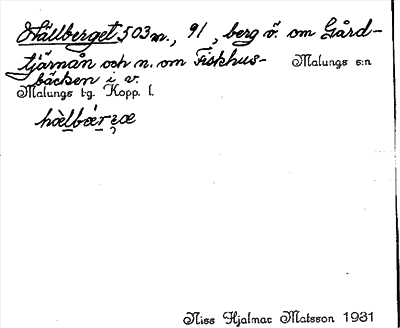 Hällberget 503 m., 91, berg ö. om Gård-
tjärnån och n. om Fiskhus- Malungs s:n
bäcken i v.
Malungs t:g. Kopp. l.
hàlbær̨æ
Niss Hjalmar Matsson 1931